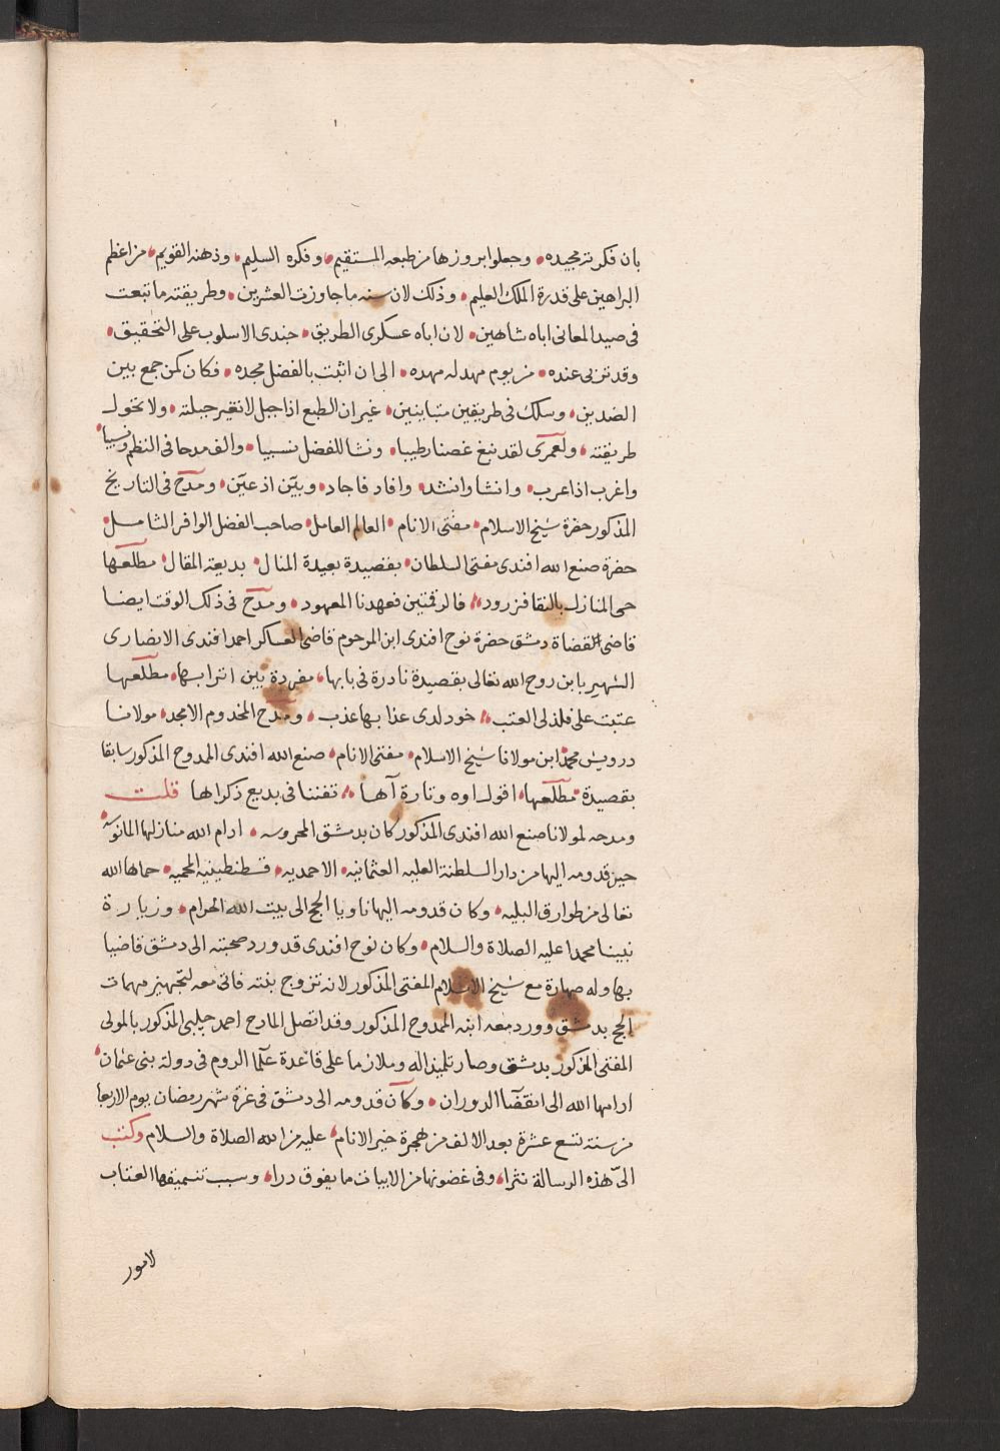 بان فكرته مجيده، وجعلوا بروزها من طبعه المستقيم، وفكره السليم، وذهنه القويم، من اعظم
البراهين على قدرة الملك العليم، وذلك لان سنه ما جاوزت العشرين، وطريقته ما تبعت
فى صيد المعانى اباه شاهين، لان اباه عسكرى الطريق، جندى الاسلوب على التحقيق،
وقد تربى عنده، من يوم مهد له مهده، الى ان اثبت بالفضل مجده، فكان كمن جمع بين
الضدين، وسلك فى طريقين متباينين، غير ان الطبع اذا جبل لا تغير جبلته، ولا تحول
طريقته، ولعمرى لقد نبغ غصنا رطيبا، ونشا للفضل نسيبا، والف مدحا فى النظم ونسيبا،
واغرب اذا عرب، وانشا وانشد، وافاد فاجاد، وبين اذ عين، ومدح فى التاريخ
المذكور حضرة شيخ الاسلام، مفتى الانام، العالم العامل، صاحب الفضل الوافر الشامل،
حضرة صنع الله افندى مفتى السلطان، بقصيدة بعيدة المنال، بديعة المقال، مطلعها
حى المنازل بالنقا فزرود، فالرقمتين فعهدنا المعهود، ومدح فى ذلك الوقت ايضا
قاضى القضاة دمشق حضرة نوح افندى ابن المرحوم قاضى العساكر احمد افندى الانصارى
الشهير بابن روح الله تعالى بقصيدة نادرة فى بابها، مفردة بين اترابها، مطلعها
عتبت على فلذ لى العتب، خود لدى عذابها عذب، ومدح المخدوم الامجد، مولانا
درويش محمد ابن مولانا شيخ الاسلام، مفتى الانام، صنع الله افندى الممدوح المذكور سابقا
بقصيدة مطلعها، اقول اوه وتارة آها، تفننا فى بديع ذكراها قلت
ومدحه لمولانا صنع الله افندى المذكور كان بدمشق المحروسه، ادام الله منازلها المانوسه،
حين قدومه اليها من دار السلطنة العليه العثمانيه، الاحمديه، قسطنطينيه المحميه، حماها الله
تعالى من طوارق البليه، وكان قدومه اليها ناويا الحج الى بيت الله الحرام، وزيارة
نبينا محمدا عليه الصلاة والسلام، وكان نوح افندى قد ورد صحبته الى دمشق قاضيا
بها وله صهارة مع شيخ الاسلام المفتى المذكور لانه تزوج بنته فاتى معه لتجهيز مهمات
الحج بدمشق وورد معه ابنه الممدوح المذكور وقد اتصل المادح احمد جلبى المذكور بالمولى
المفتى المذكور بدمشق وصار تلميذا له وملازما على قاعدة علما الروم فى دولة بنى عثمان،
ادامها الله الى انقضا الدوران، وكان قدومه الى دمشق فى غرة شهر رمضان يوم الاربعا
من سنة تسع عشرة بعد الالف من هجرة خير الانام، عليه من الله الصلاة والسلام وكتب
الى هذه الرسالة نثرا، وفى غضونها من الابيات ما يفوق درا، وسبب تنميقها العتاب
لامور